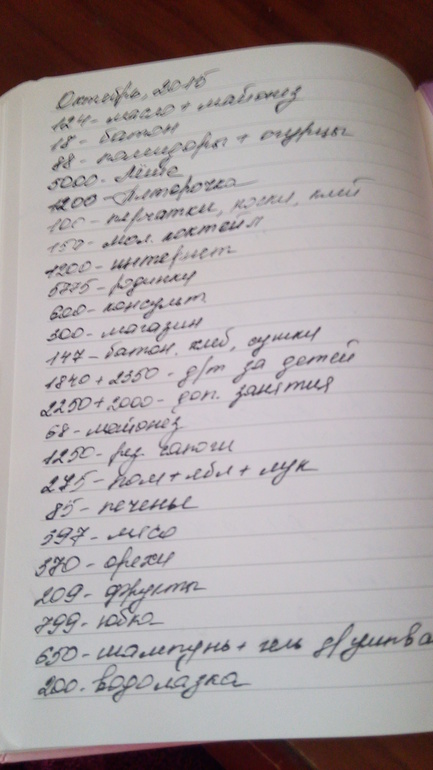 Октябрь, 2015
124 - масло + майонез
18 - батон
88 - помидоры + огурцы
5000 - Лёше
1200 - Пятёрочка
100 - перчатки, носки, клей
150 - мол. коктейл
1200 - интернет
5775 - родинки
600 - консульт
300 - магазин
147 - батон, хлеб, сушки
1840 + 2350 - д/т за детей
2250 + 2000 - доп. занятия
68 - майонез
1250 - рез. сапоги
275 - пом + ябл + лук
85 - печенье
397 - мясо
370 - орехи
209 - фрукты
799 - юбка
650 - шампунь + гель д/умыва
200 - водолазка